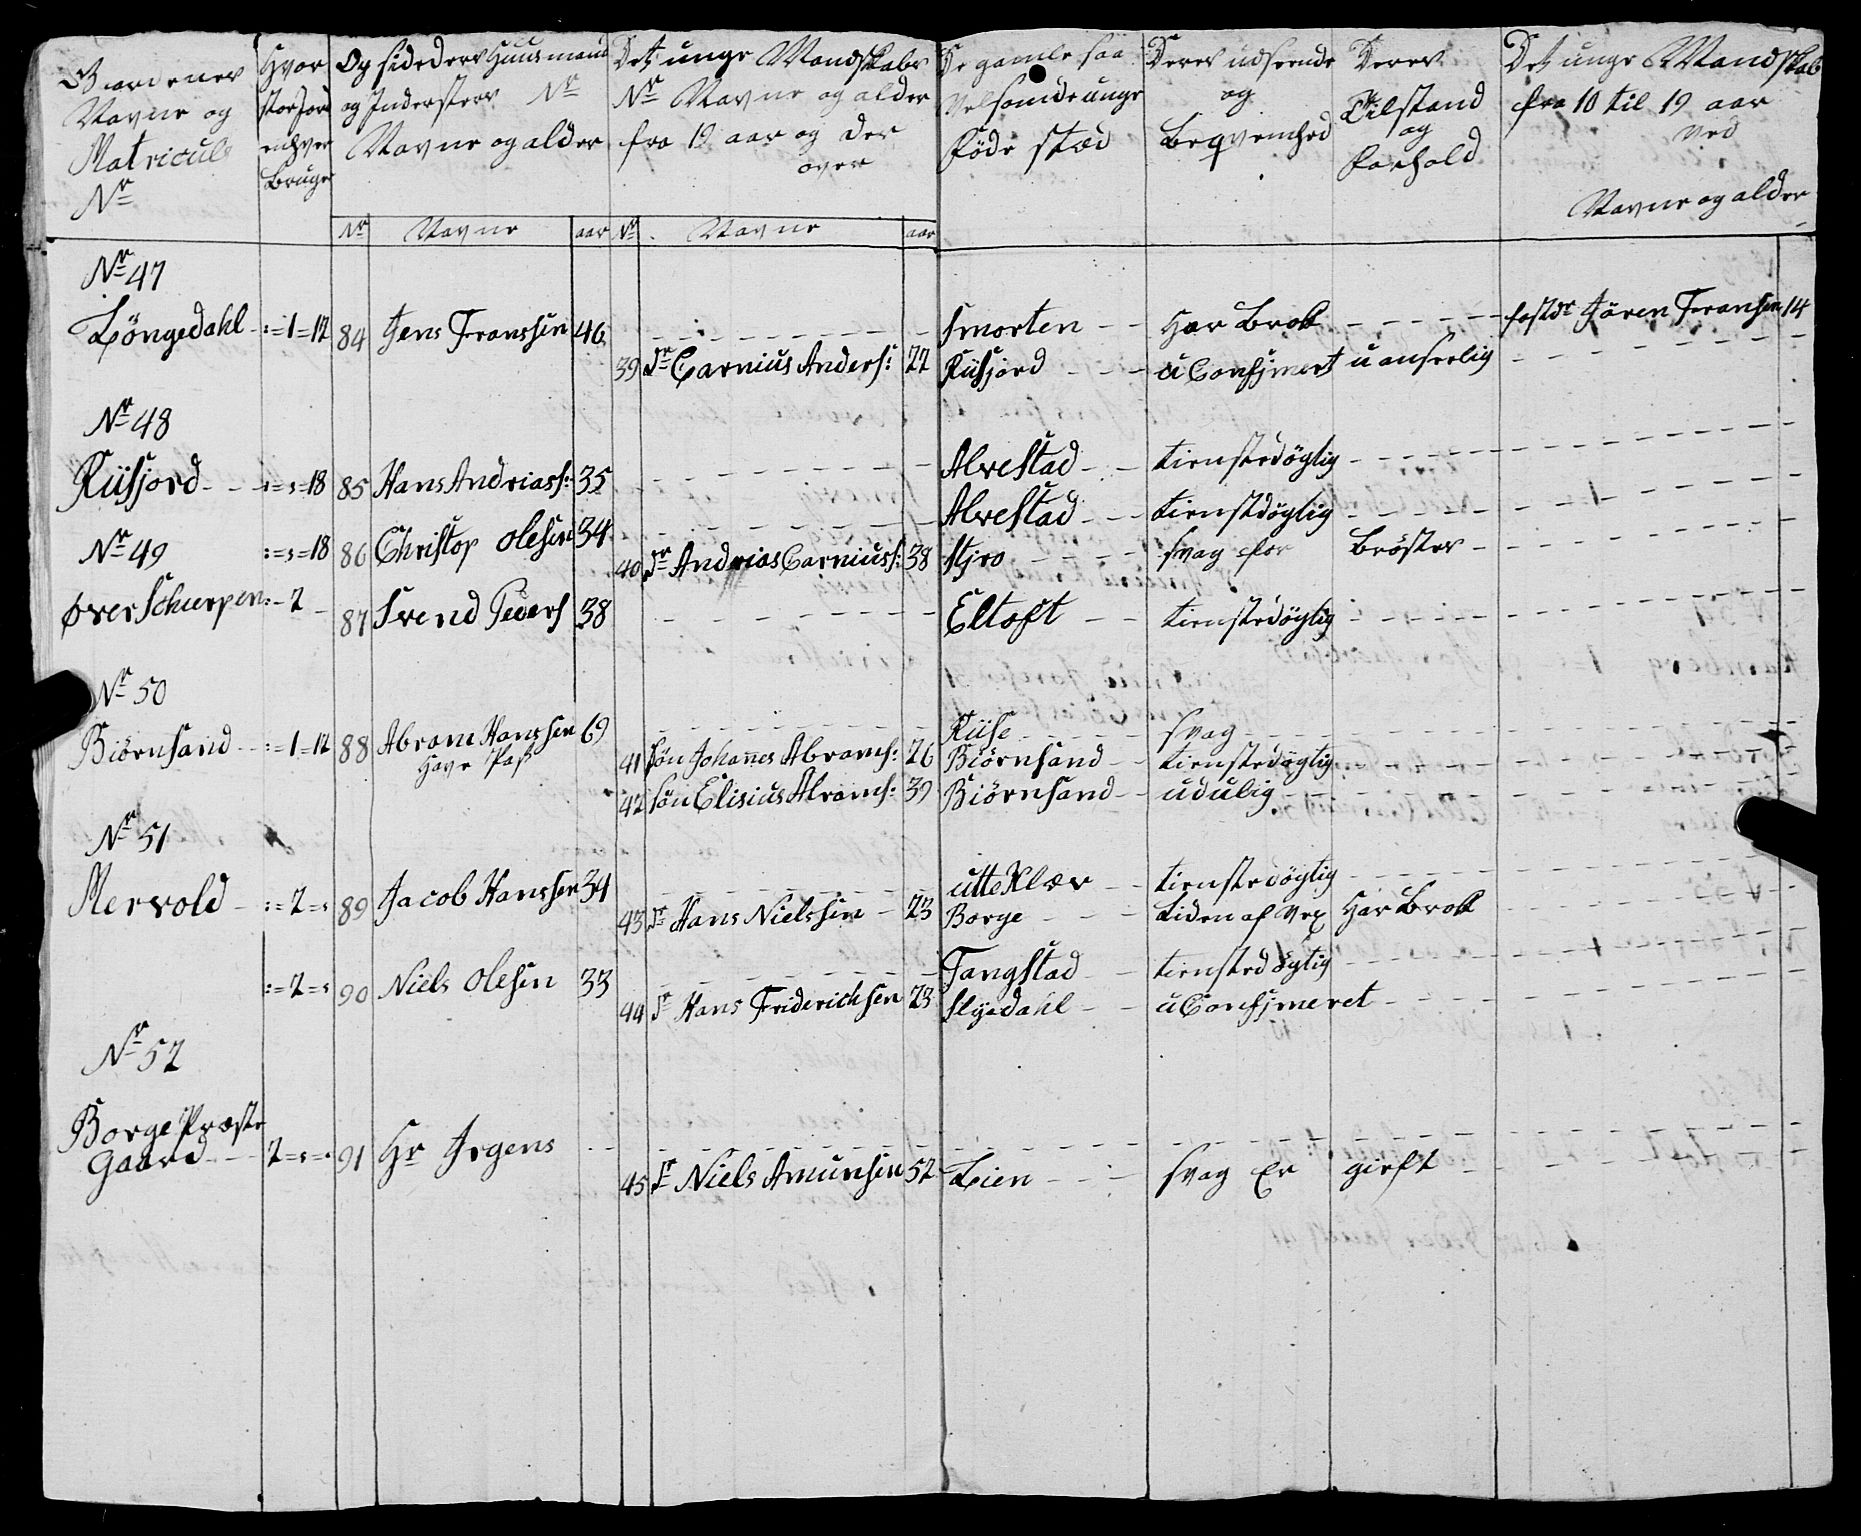 Gaardenes Navne og Matriculs No
Hvor stor Jord enhver Bruger
Opsidedere Huusmænd og Inderster No Navne og alder
Det unge Mandskabs No Navne og alder fra 19 aar og der over
De gamle saa vel som de unge Føde stæd
Deres udseende og beqvemhed
Deres Tilstand og Forhold
Det unge Mandskab fra 10 til 19 aar ved Navne og alder
No Navne aar No Navne aar
No 47
Löngedahl :=1=12 84 Jens Franssen 46 Smorten Har Brok fostdr Jören Fransen 14
39 dr Carnius Anders: 22 Riisjord uConfimert uanseelig
No 48
Riisjord :=s=18 85 Hans Andriass: 35 Alvestad tienstedögtig
No 49 :=s=18 86 Christop Olesen 34 Alvestad tienstdögtig
40 dr Andrias Carniuss: 38 Stjro svag for Bröstet
øver Schierpen :-2 87 Svend Peders 38 Eltoft tienstedögtig
No 50
Biörnsand :=1=12 88 Abram Hanssen 69 Riise svag
Have Pas
41 Sön Johannes Abrams: 26 Biörnsand tienstedögtig
42 Sön Elisius Abrams: 39 Biörnsand udulig
No 51
Mervold :=2=s 89 Jacob Hanssen 34 utteKlæv tienstedögtig
43 dr Hans Nielssen 23 Borge Liden af Vex Har Brok
:=2=s 90 Niels Olesen 33 Fangstad tienstedögtig
44 dr Hans Friderichsen 23 Slyedahl uConfimeret
No 52
Borge Præste
Gaard 2=s=. 91 Hr Irgens
45 dr Niels Amunsen 52 Leien svag Er gieft